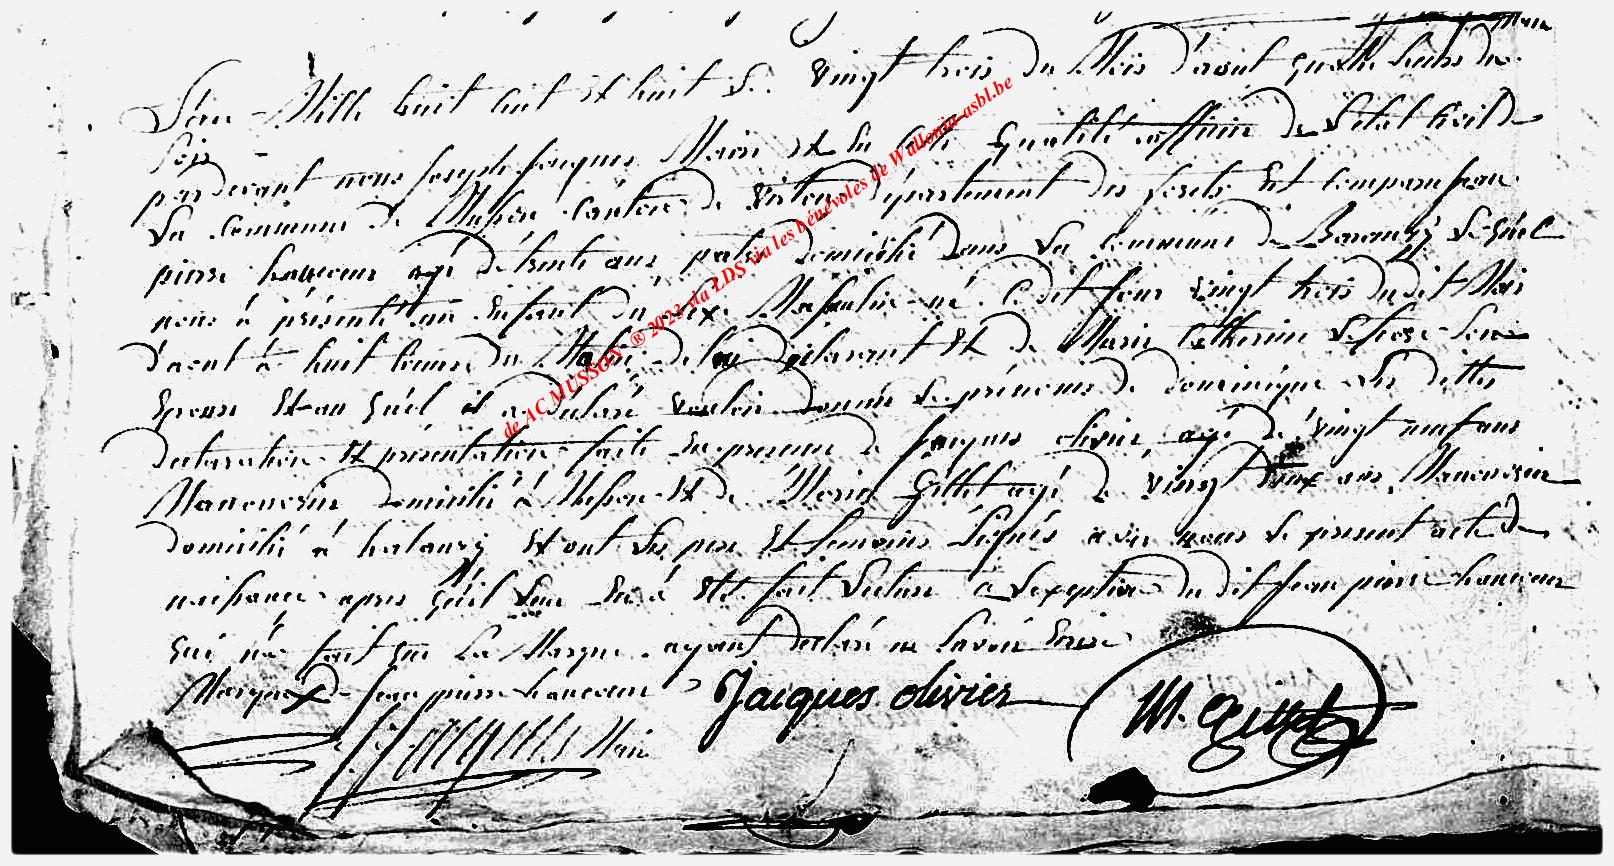 L'an Mille huit cent et huit Le vingt trois du Mois d'aout quatre heures du
soir
pardevant nous Joseph Jacques Maire et en cette qualité officier de L'etat Civil de
La Commune de Musson Canton de Virton département des forets Est Comparu jean
pierre hauceur agé de trente ans domicilié dans La Commune de Baranzy Lequel
nous à présenté un Enfant du sexe Masculin né Ce dit jour vingt trois dudit Mois
d'aout à huit heures du Matin de lui déclarant Et de Marie Catherine son
Epouse Et au quel il a déclaré vouloir donner Le prénoms de dominique Les dittes
declaration Et présentation faite En presence de Jacques olivier agé de vingt neuf ans
Manouvrier domicilié à Musson Et de Gillet agé de vingt deux ans Manouvrier
domicilié à halanzy Et ont Les pere Et temoins signés avec nous Le present acte de
naissance apres qu'il Leur En à Eté fait Lecture a L'exception du dit Jean pierre hauceur
qui n'a fait que La Marque ayant declaré ne savoir Ecrire
Marque X de Jean pierre hauceur
Jacques olivier
M. Gillet
J. J. Jacques Maire
de AC MUSSON ® 2023 via LDS via les bénévoles de Wallonia-asbl.be